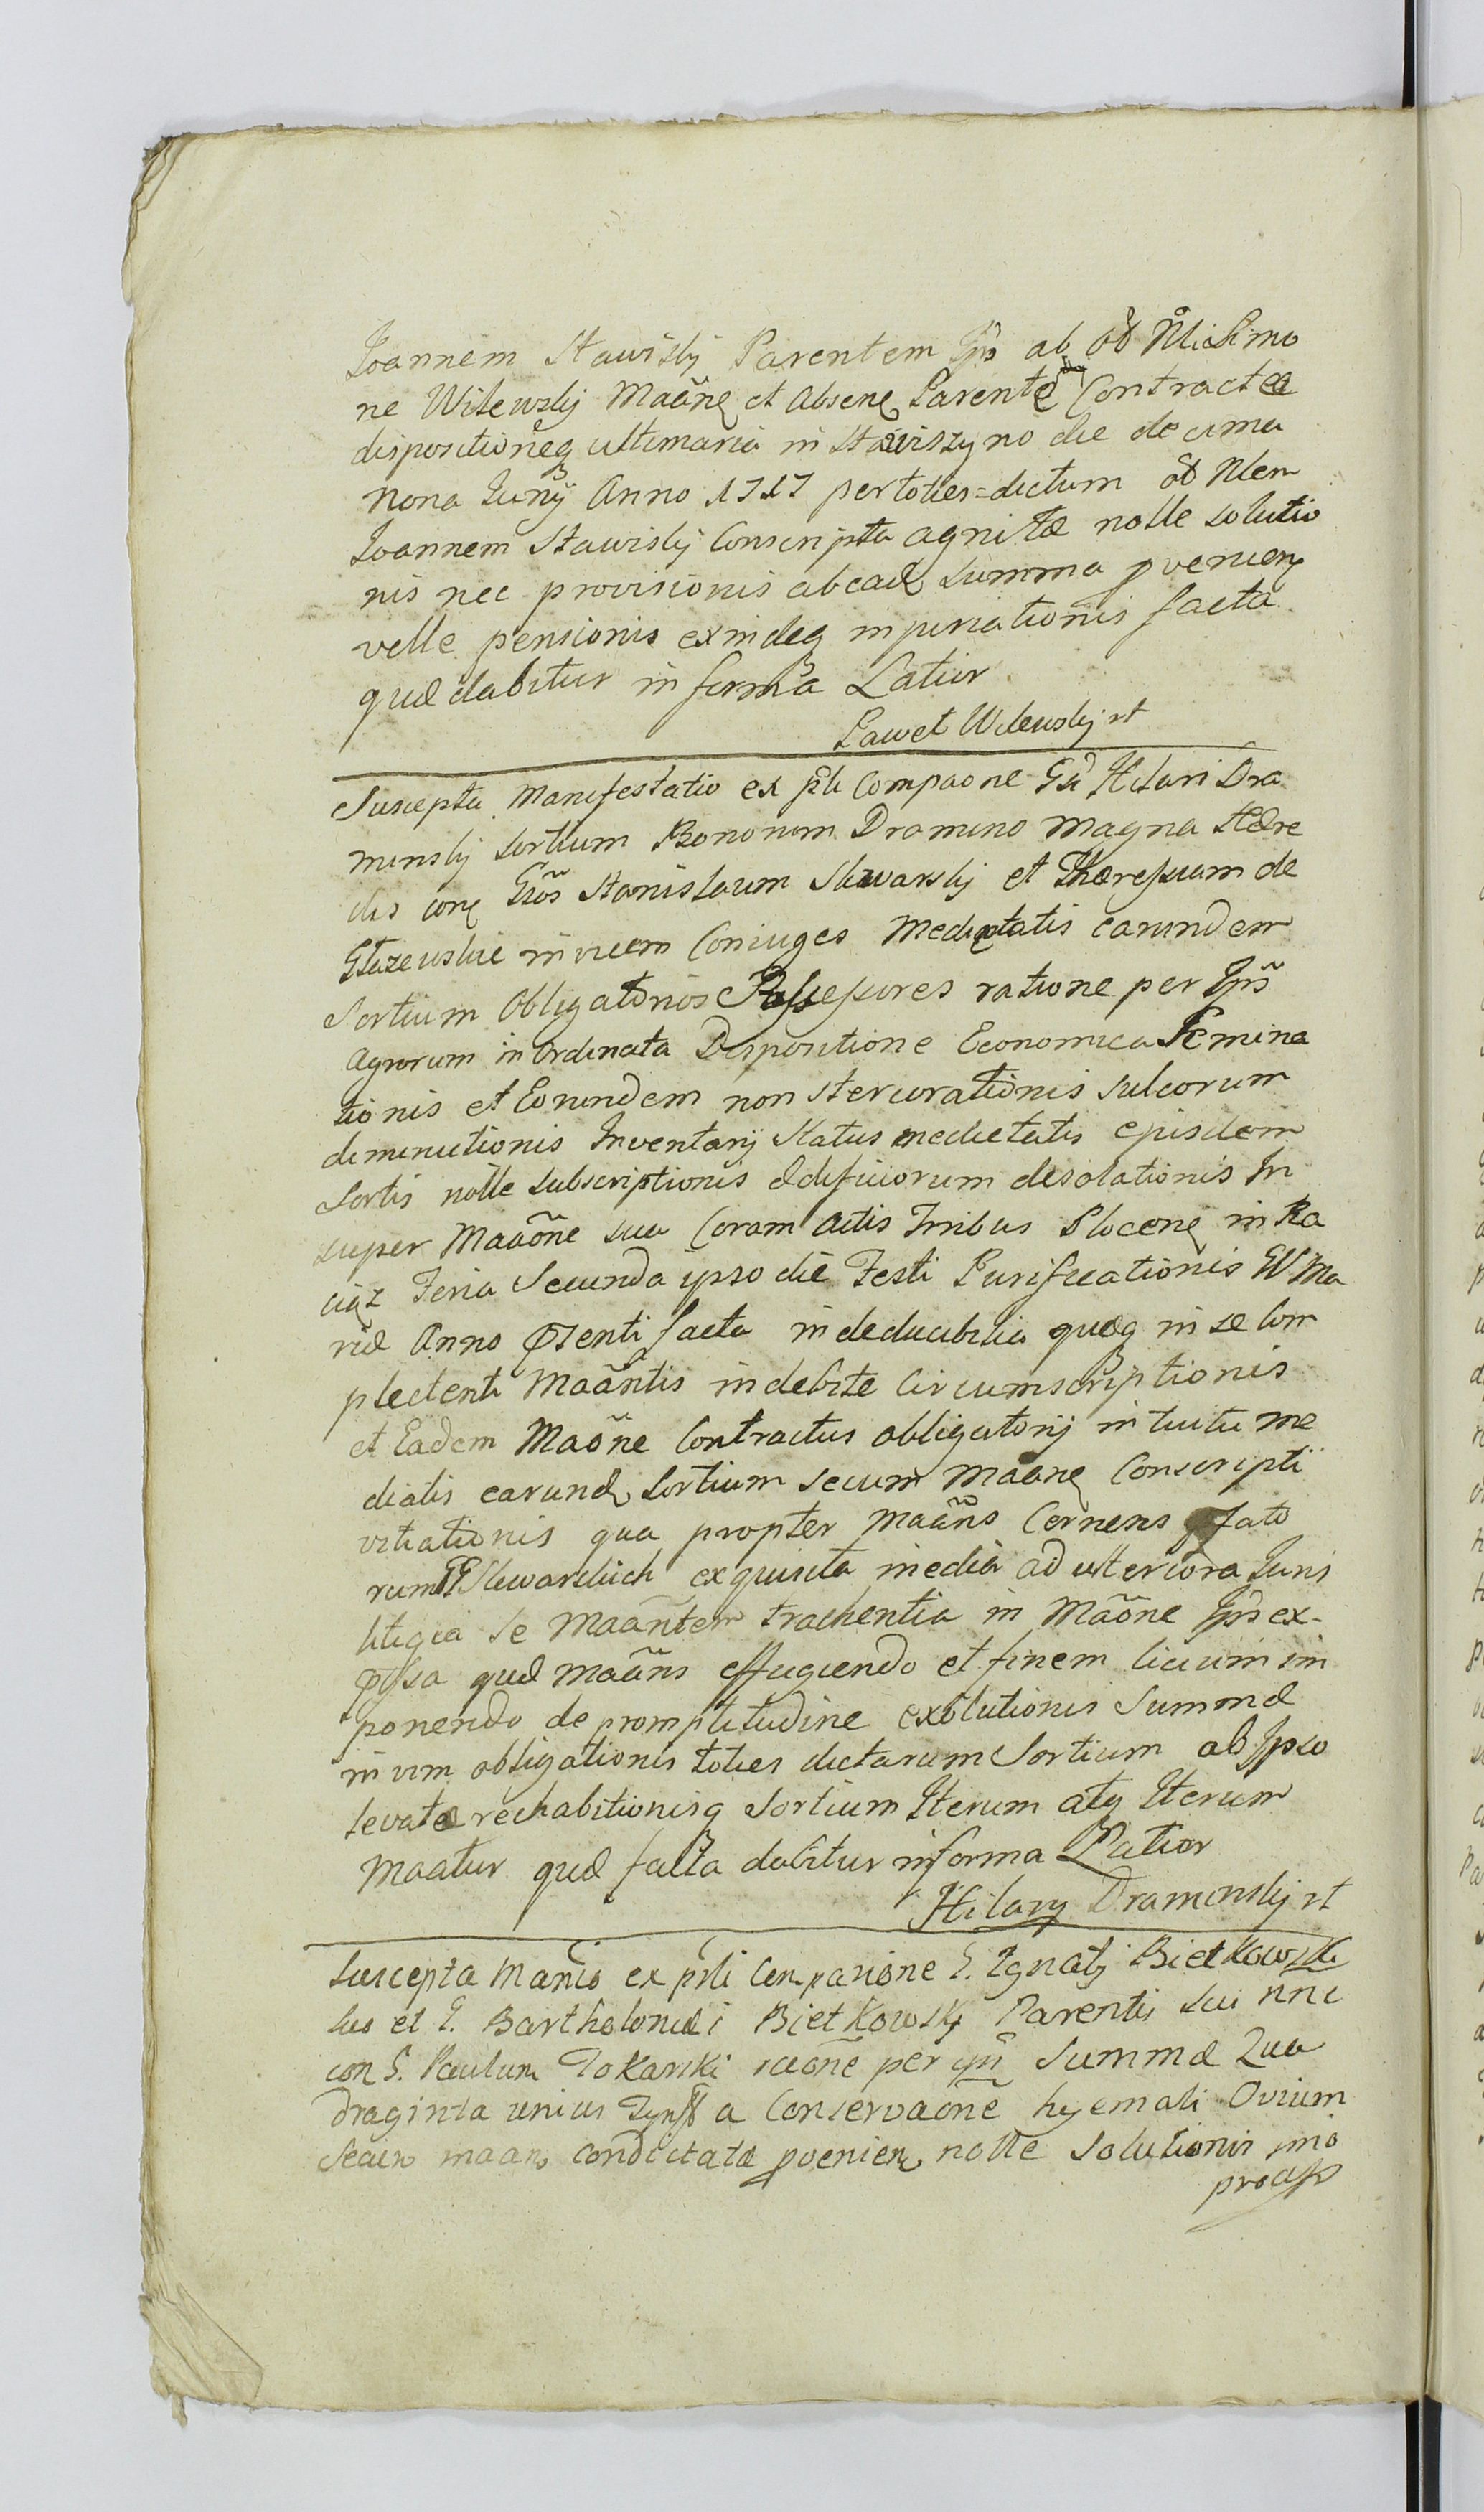 Joannem Stawisky Parentem Ips ab od Maximo
ne Wilewsky Maãne et Absene Parente Contractæ
dispositioneq ultimaria in Stawiszyno die decima
nona Juny Anno 1717 per toties=dictum od Men
Joannem Stawisky Conscripta agnitæ nolle solutio
nis nec provisionis abead summa pvenien
velle pensionis exindeq injuriationis facta
quæ dabitur in forma Latior
Pawel Wilewsky rt
Suscepta Manifestatio ex pli Compaone Gsi Hilari Dra
minsky sortium Bonorum Dramino Magna Hære
dis con Gsos Stanislaum Skwarsky et Theressiam de
Głazewskie invicem Coniuges Medietatis earundem
Sortium Obligatorios Possessores ratione per Ips
Agrorum in Ordinata Dispositione Economica Semina
tionis et Eorundem non stercorationis sulcorum
diminutionis Inventarij Status medietatis ejusdem
Sortis nolle subscriptionis ædificiorum desolationis In
super Maãone sua Coram Actis Trribus Plocen in Ra
ciąz Feria Secunda ipso die Festi Purificationis BVMa
riæ Anno præsenti facta indeducibilia quæq in se Com
plectenti Maãntis indebite Circumscriptionis
et Eadem Maõne Contractus obligatorij intuitu me
dietatis earund Sortium secum Maane Conscripti
vitiationis qua propter Maãns Cernens pfato
rum GG Skwarskich exquisita media ad ulteriora Juris
litigia se Maãntem trachentia in Maõne Ips ex-
pssa quæ Maãns effugiendo et finem licium im
ponendo de promptitudine exolutionis Summæ
in vim obligationis toties dictarum Sortium ab Ipso
levatæ rechabitionisq Sortium Iterum atq Iterum
Maatur quæ facta dabitur in forma Latior
Hilary Draminsky rt
Suscepta Manio ex psti Comparione G. Ignatij Bietkowski
suo et G. Bartholomæi Bietkowsky Parentis sui nne
con G. Paulum Tokarski raone per ipm Summæ Qua
draginta unius Tynff a Conservaone hyemali Ovium
Secum maan condictatæ pvenien nolle Solutionis imo